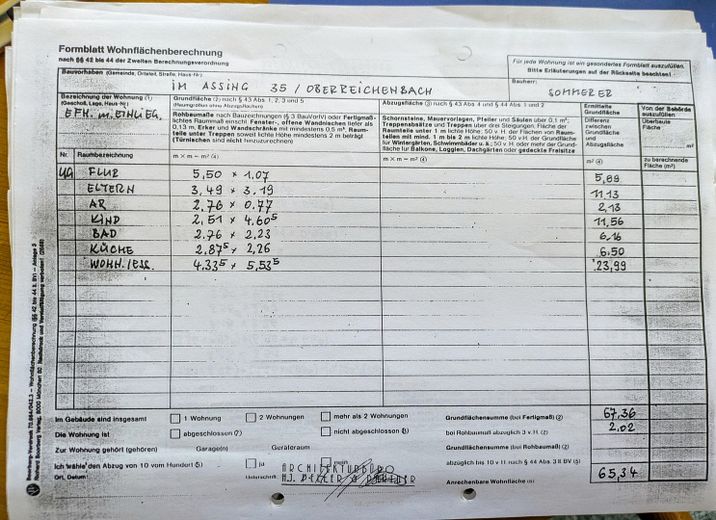 Formblatt Wohnflächenberechnung
nach §§ 42 bis 44 der Zweiten Berechnungsverordnung
Für jede Wohnung ist ein gesondertes Formblatt auszufüllen.
Bitte Erläuterungen auf der Rückseite beachten!
Bauvorhaben (Gemeinde, Ortsteil, Straße, Haus-Nr.)
IM ASSING 35 / OBERREICHENBACH
Bauherr:
SOMMERER
Bezeichnung der Wohnung (1)
(Geschoß, Lage, Haus-Nr.)
EFH. m. EINLIEG.
Grundfläche (2) nach § 43 Abs. 1, 2, 3 und 5
Abzugsfläche (3) nach § 43 Abs. 4 und § 44 Abs. 1 und 2
Ermittelte Grundfläche
Von der Behörde auszufüllen
Rohbaumaße nach Bauzeichnungen (§ 3 BauVorlV) oder Fertigmaß-
lichtes Raummaß einschl. Fenster-, offene Wandnischen tiefer als
0,13 m, Erker und Wandschränke mit mindestens 0,5 m², Raum-
teile unter Treppen soweit lichte Höhe mindestens 2 m beträgt
(Türnischen sind nicht hinzuzurechnen)
Schornsteine, Mauervorlagen, Pfeiler und Säulen über 0,1 m²;
Treppenabsätze und Treppen über drei Steigungen; Fläche der
Raumteile unter 1 m lichte Höhe; 50 v. H. der Flächen von Raum-
teilen mit mind. 1 m bis 2 m lichte Höhe; 50 v.H. der Grundfläche
für Wintergärten, Schwimmbäder u. ä.; 50 v. H. oder mehr der Grund-
fläche für Balkone, Loggien, Dachgärten oder gedeckte Freisitze
Differenz zwischen Grundfläche und Abzugsfläche
Überbaute Fläche
m²
Nr. Raumbezeichnung m × m = m² (4) m × m = m² (4) m² (4) zu berechnende Fläche (m²)
UG FLUR 5,50 × 1.07 5,89
ELTERN 3,49 × 3.19 11.13
AR 2.76 × 0.77 2,13
KIND 2,51 × 4.60⁵ 11,56
BAD 2.76 × 2.23 6.16
KÜCHE 2.87⁵ × 2,26 6.50
WOHN./ESS. 4.33⁵ × 5,53⁵ 23,99
Im Gebäude sind insgesamt 1 Wohnung 2 Wohnungen mehr als 2 Wohnungen Grundflächensumme (bei Fertigmaß) (2) 67,36
Die Wohnung ist abgeschlossen (7) nicht abgeschlossen (8) bei Rohbaumaß abzüglich 3 v. H. (2) 2.02
Zur Wohnung gehört (gehören) Garage(n) Geräteraum Grundflächensumme (bei Rohbaumaß) (2)
Ich wähle den Abzug von 10 vom Hundert (5) ja nein abzüglich bis 10 v H nach § 44 Abs. 3 II BV (5)
Ort, Datum: Unterschrift: ARCHITEKTURBÜRO
Anrechenbare Wohnfläche (6) 65,34